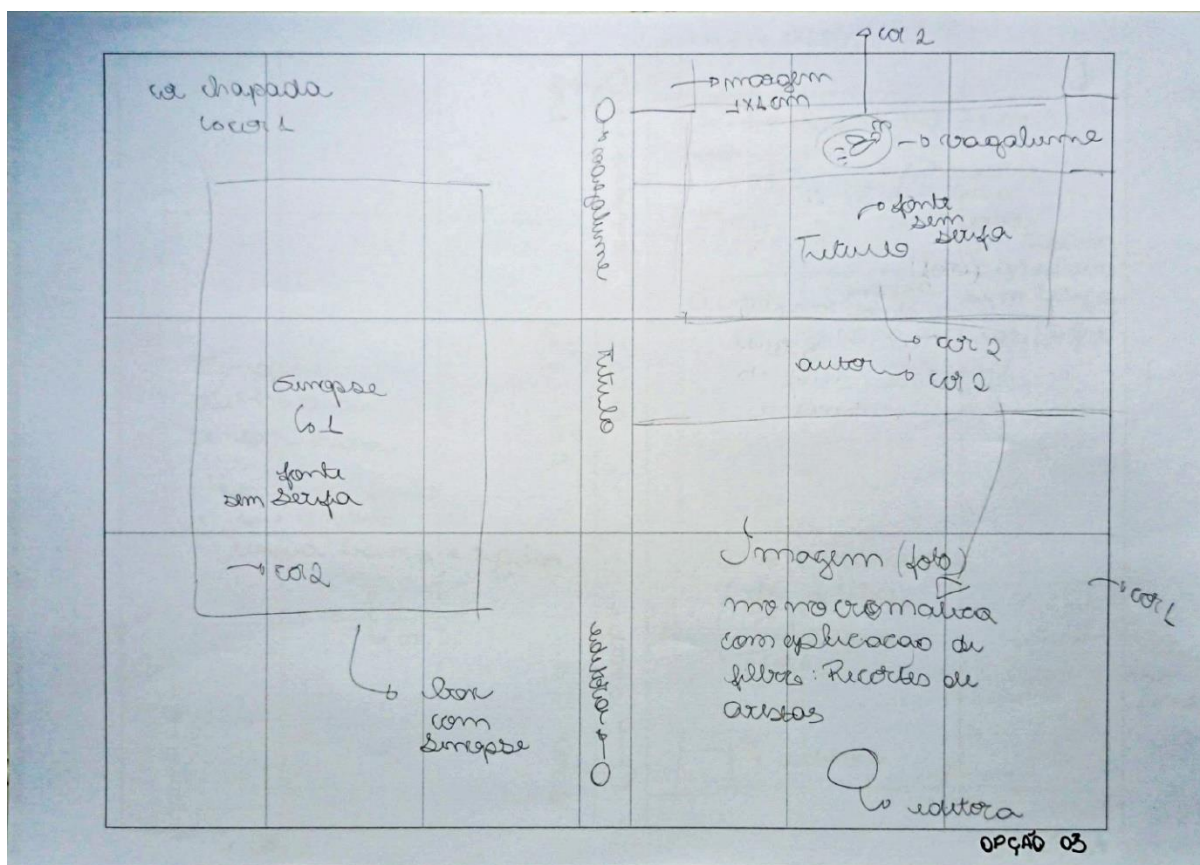 cor chapada
↳ cor 1
Sinopse
↳ 1
fonte
sem serifa
→ cor 2
↳ box
com
sinopse
vagalume
Titulo
editora
cor 2
→ margem
1x1cm
→ vagalume
fonte
sem
serifa
Titulo
↳ cor 2
autor → cor 2
Imagem (foto)
monocromatica
com aplicacao de
filtro: Recortes de
arestas
→ cor 1
↳ editora
OPÇÃO 03